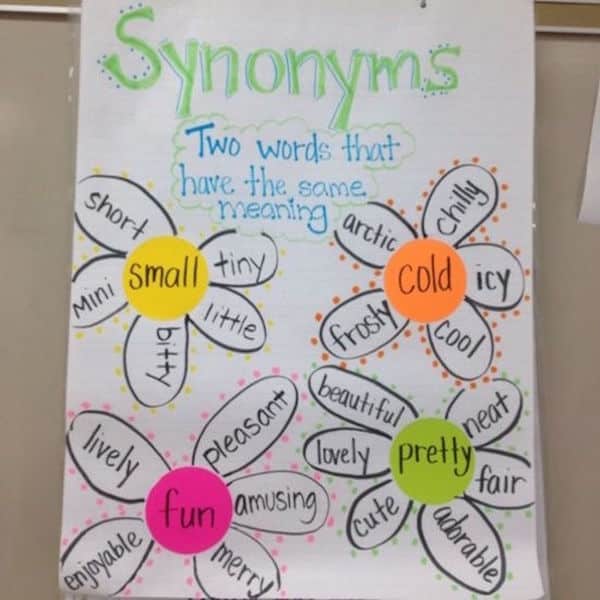 Synonyms
Two words that
have the same
meaning
short
small
tiny
mini
little
bitty
arctic
chilly
cold
icy
frosty
cool
lively
pleasant
fun
amusing
enjoyable
merry
beautiful
neat
lovely
pretty
fair
cute
adorable